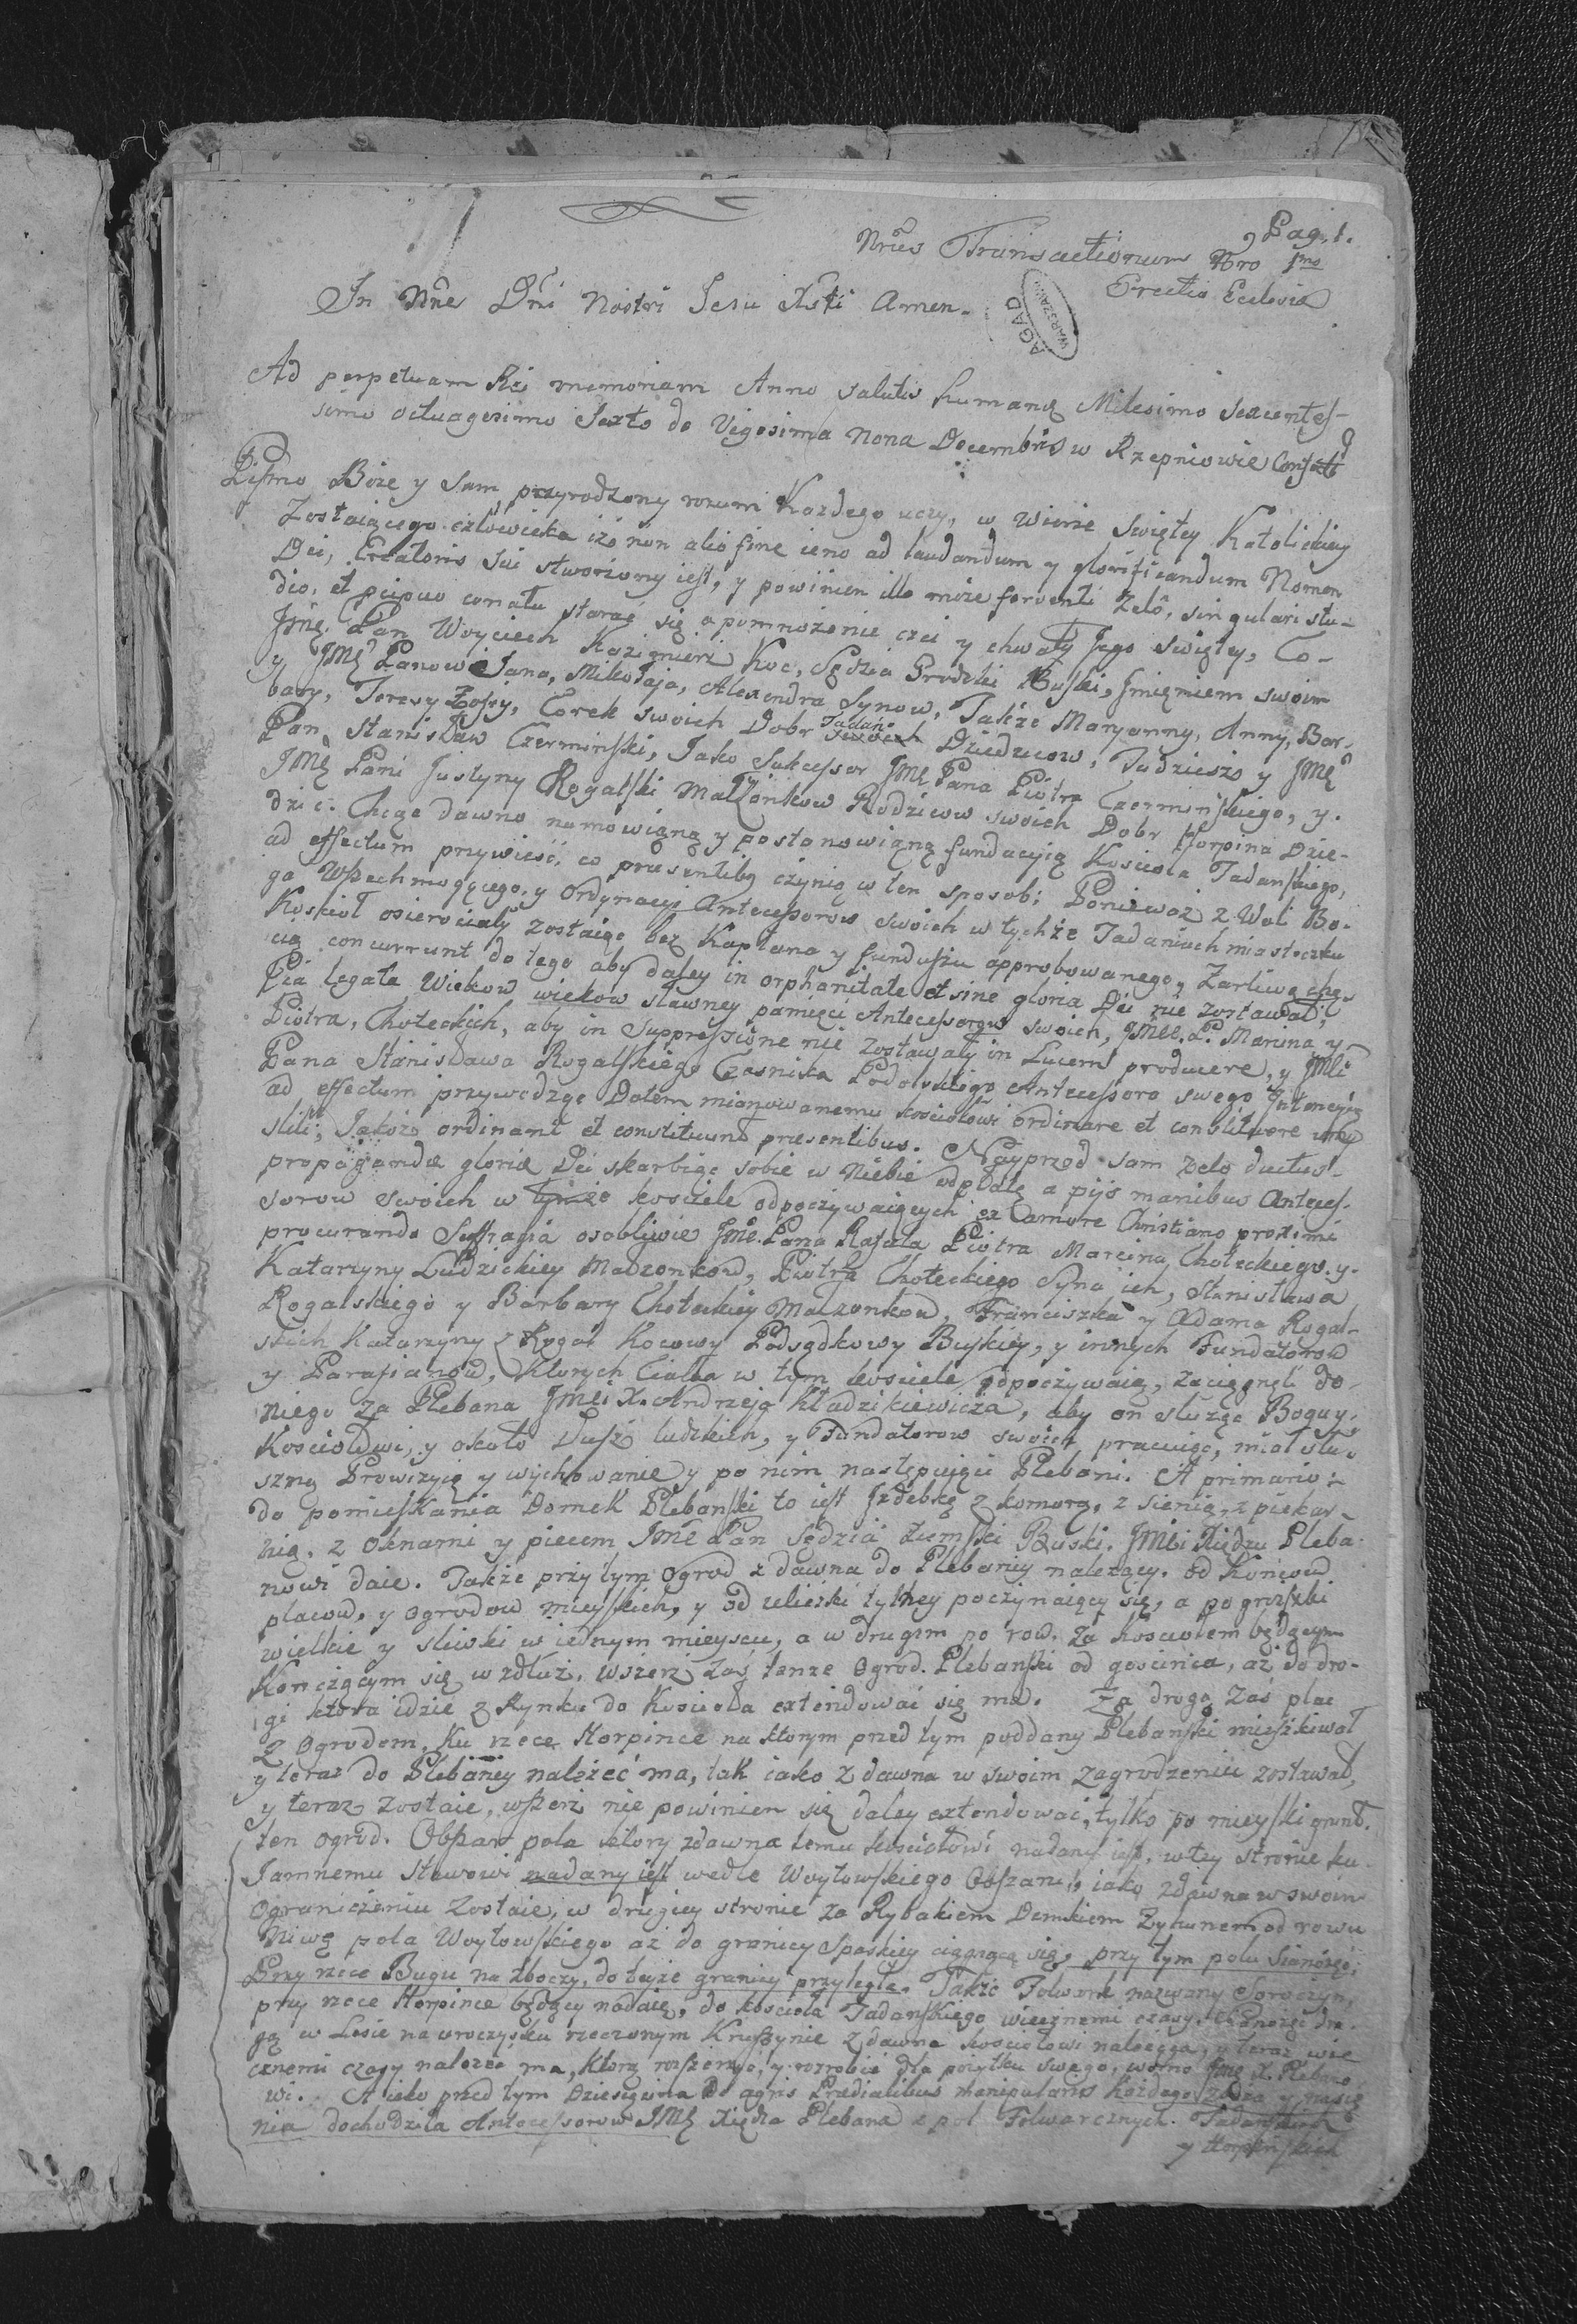 Pag. 1.
Nrus Transactionum Nro 1mo
Erectio Ecclesiæ
In Nne Dni Nostri Jesu Xsti Amen.
AGAD
WARSZAWA
Ad perpetuam Rei memoriam Anno Salutis humanę Milesimo Sexcentes-
simo octuagesimo Sexto de Vigesima Nona Decembris w Rzepniowie
Pismo Boże y Sam przyrodzony rozum Kazdego uczy, w Wierze Swiętey Katolickiey
Zostaiącego człowieka iże non alio fine ieno ad laudandum y glorificandum Nomen
Dei, Creatoris Sui stworzony iest, y powinien ille może ferventi Zelô, singulari stu-
dio, et pcipuo conatu starać się o pomnożenie czci y chwały Jego Swiętey, Co-
Jmę Pan Woyciech Kazimierz Koc, Sędzia Grodzki Buski, Jmięniem swoim
y JMę Panow Jana, Mikołaja, Alexandra Synow, Także Maryanny, Anny, Bar-
bary, Teresy Zofiy, Corek swoich Dobr Tadań Dziedzicow, Tudziesz y JMę
Pan Stanisław Czerminski, Jako Sukcessor JMę Pana Piotra Czerminskiego, y.
JMę Pani Justyny Rogalski Małżonkow Rodzicow swoich Dobr Horpina Dzie-
dzic. Chcąc dawno namowioną y postanowioną fundacyią Kosciola Tadanskiego,
ad effectum przywiesć, co præsentibq czynią w ten sposob; Ponieważ z Woli Bo-
ga Wszechmogącego, y Ordynacyi Antecessorow swoich w tychże Tadaniach miasteczku
Koskioł osierociały zostaiąc bez Kapłana y funduszu approbowanego, Zarliwą chę-
cią concurrunt do tego aby daley in orphanitate et sine gloria Dei nie zostawał,
Pia legata Wiekow wiekow sławney pamięci Antecessorow swoich, JMCC. P. Marcina y
Piotra, Choteckich, aby in Suppressione nie zostawały in Lucem producere, y JMCi
Pana Stanisława Rogalskiego Czesnika Podolskiego Antecessora swego Intencyią
ad effectum przywodząc Dotem mianowanemu kosciołowi ordinare et constituere umy
slili, Jakoż ordinant et constituunt præsentibus. Nayprzod sam zelo ductus
propagandæ gloriæ Dei skarbiąc sobie w Niebie odpłatę a pijs manibus Anteces-
sorow swoich w tymże kosciele odpoczywaiących ex amore Christiano proximi
procurando Suffragia osobliwie Jmc. Pana Rafała Piotra Marcina Choteckiego. y.
Katarzyny Ludzickiey Małzonkow, Piotra Choteckiego Syna ich, Stanisława
Rogalskiego y Barbary Choteckiey Malzonkow, Franciszka y Adama Rogal-
skich Katarzyny z Rogal Kocowy Podsędkowy Buskiey, y innych Fundatorow
y Parafianow, Ktorych Ciała w tym kosciele odpoczywaią, zaciągneli do-
niego za Plebana JMci X. Andrzeja Kładzikiewicza, aby on służąc Bogu y.
Kosciołowi, y około Dusz ludzkich, y Fundatorow swoich pracuiąc, miał słu-
szną Prowizyią y wychowanie y po nim następuiący Plebani. A primario:
do pomieszkania Domek Plebanski to iest Izdebkę z komorą, z sienią, z piekar-
nią, z oknami y piecem JMć Pan Sędzia Ziemski Buski. JMci Xiędzu Pleba-
nowi daie. Także przy tym ogrod z dawna do Plebaniy należący. od Końcow
placow, y ogrodow mieyskich, y od uliczki tylney poczynaiący się, a po gruszki
wielkie y sliwki w iednym mieyscu, a w drugim po row. za kosciołem będącym
Kończącym się wzdłuż, wszerz zaś tenże Ogrod Plebanski od goscinca, aż do dro-
gi ktora idzie z Rynku do Kosciola extendować się ma. Za drogą zaś plac
z Ogrodem, Ku rzece Horpince na ktorym przed tym poddany Plebanski mieszkiwał
y teraz do Plebaniey należeć ma, tak iako z dawna w swoim zagrodzeniu zostawał,
y teraz zostaie, wszerz nie powinien się daley extendować, tylko po mieyski grunt.
ten ogrod. Obszar pola ktory zdawna temu kosciołowi nadany iest. w tey stronie ku
Jamnemu Stawowi nadany iest wedle Woytowskiego Obszaru, iako zdawna w swoim
Ograniczeniu Zostaie, w drugiey stronie za Rybakiem Demkiem od rowu
Niwę pola Woytowskiego aż do granicy Spaskiey ciągnącą się, przy tym polu sianożęć,
Przy rzece Bugu na zboczy, do teyże granicy przyległe. Także Folwark nazwany Soroczyn,
przy rzece Horpince będący nadaię, do kosciola Tadanskiego wiecznemi czasy. Sianożęć dru-
gą w Lesie na uroczysku rzeczonym Kruszynie zdawna kosciołowi należącą, y teraz wie
cznemi czasy należeć ma, Ktorą rosszerzyć, y rozrobić dla pożytku swego, wolno Jmę X. Plebano
wi. A iako przed tym Dziesięcina de agris Prædialibus Manipularis każdego zboża y nasię
nia dochodziła Antecessorow JMę Xiędza Plebana z pol Folwarcznych. Tadanskich
y Horpinskich